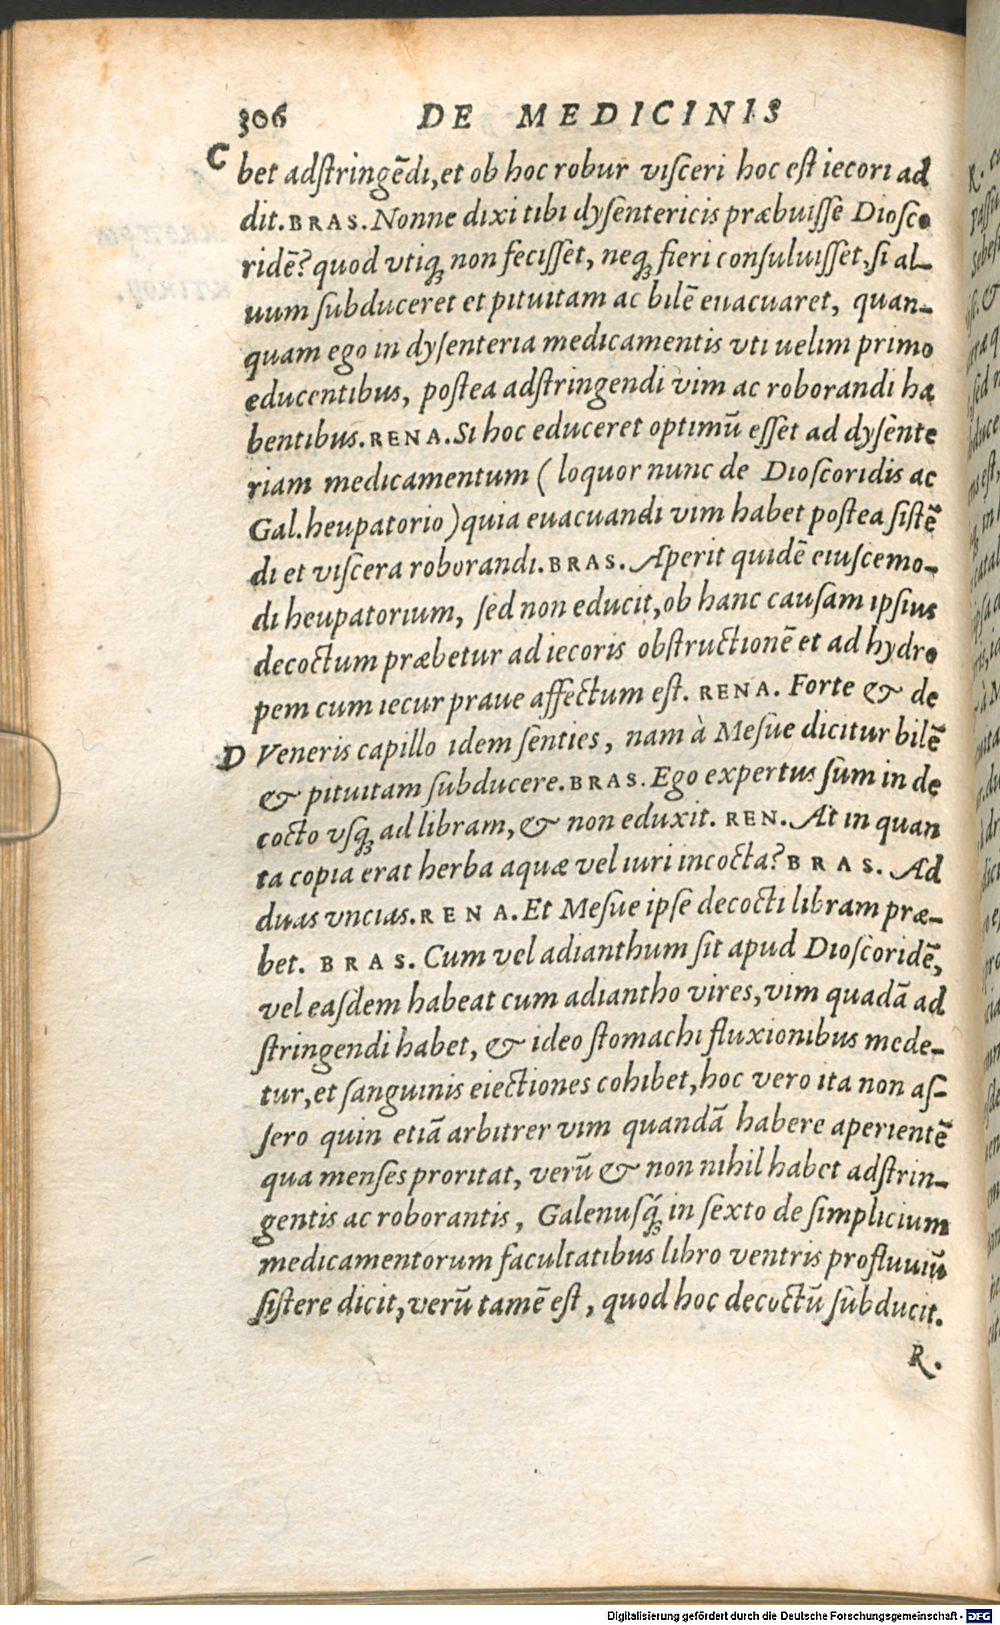 306 DE MEDICINIS
C
bet adstringēdi, et ob hoc robur visceri hoc est iecori ad
dit. BRAS. Nonne dixi tibi dysentericis præbuisse Diosco
ridē? quod vtiq; non fecisset, neq; fieri consuluisset, si al-
uum subduceret et pituitam ac bilē euacuaret, quan-
quam ego in dysenteria medicamentis vti uelim primo
educentibus, postea adstringendi vim ac roborandi ha
bentibus. RENA. Si hoc educeret optimū esset ad dysente
riam medicamentum (loquor nunc de Dioscoridis ac
Gal. heupatorio) quia euacuandi vim habet postea sistē
di et viscera roborandi. BRAS. Aperit quidē eiuscemo-
di heupatorium, sed non educit, ob hanc causam ipsius
decoctum præbetur ad iecoris obstructionē et ad hydro
pem cum iecur praue affectum est. RENA. Forte & de
D Veneris capillo idem senties, nam à Mesue dicitur bilē
& pituitam subducere. BRAS. Ego expertus sum in de
cocto vsq; ad libram, & non eduxit. REN. At in quan
ta copia erat herba aquæ vel iuri incocta? BRAS. Ad
duas vncias. RENA. Et Mesue ipse decocti libram præ-
bet. BRAS. Cum vel adianthum sit apud Dioscoridē,
vel easdem habeat cum adiantho vires, vim quadā ad
stringendi habet, & ideo stomachi fluxionibus mede-
tur, et sanguinis eiectiones cohibet, hoc vero ita non as-
sero quin etiā arbitrer vim quandā habere aperientē
qua menses proritat, verū & non nihil habet adstrin-
gentis ac roborantis, Galenusq́; in sexto de simplicium
medicamentorum facultatibus libro ventris profluuiū
sistere dicit, verū tamē est, quod hoc decoctū subducit.
R.
Digitalisierung gefördert durch die Deutsche Forschungsgemeinschaft - DFG